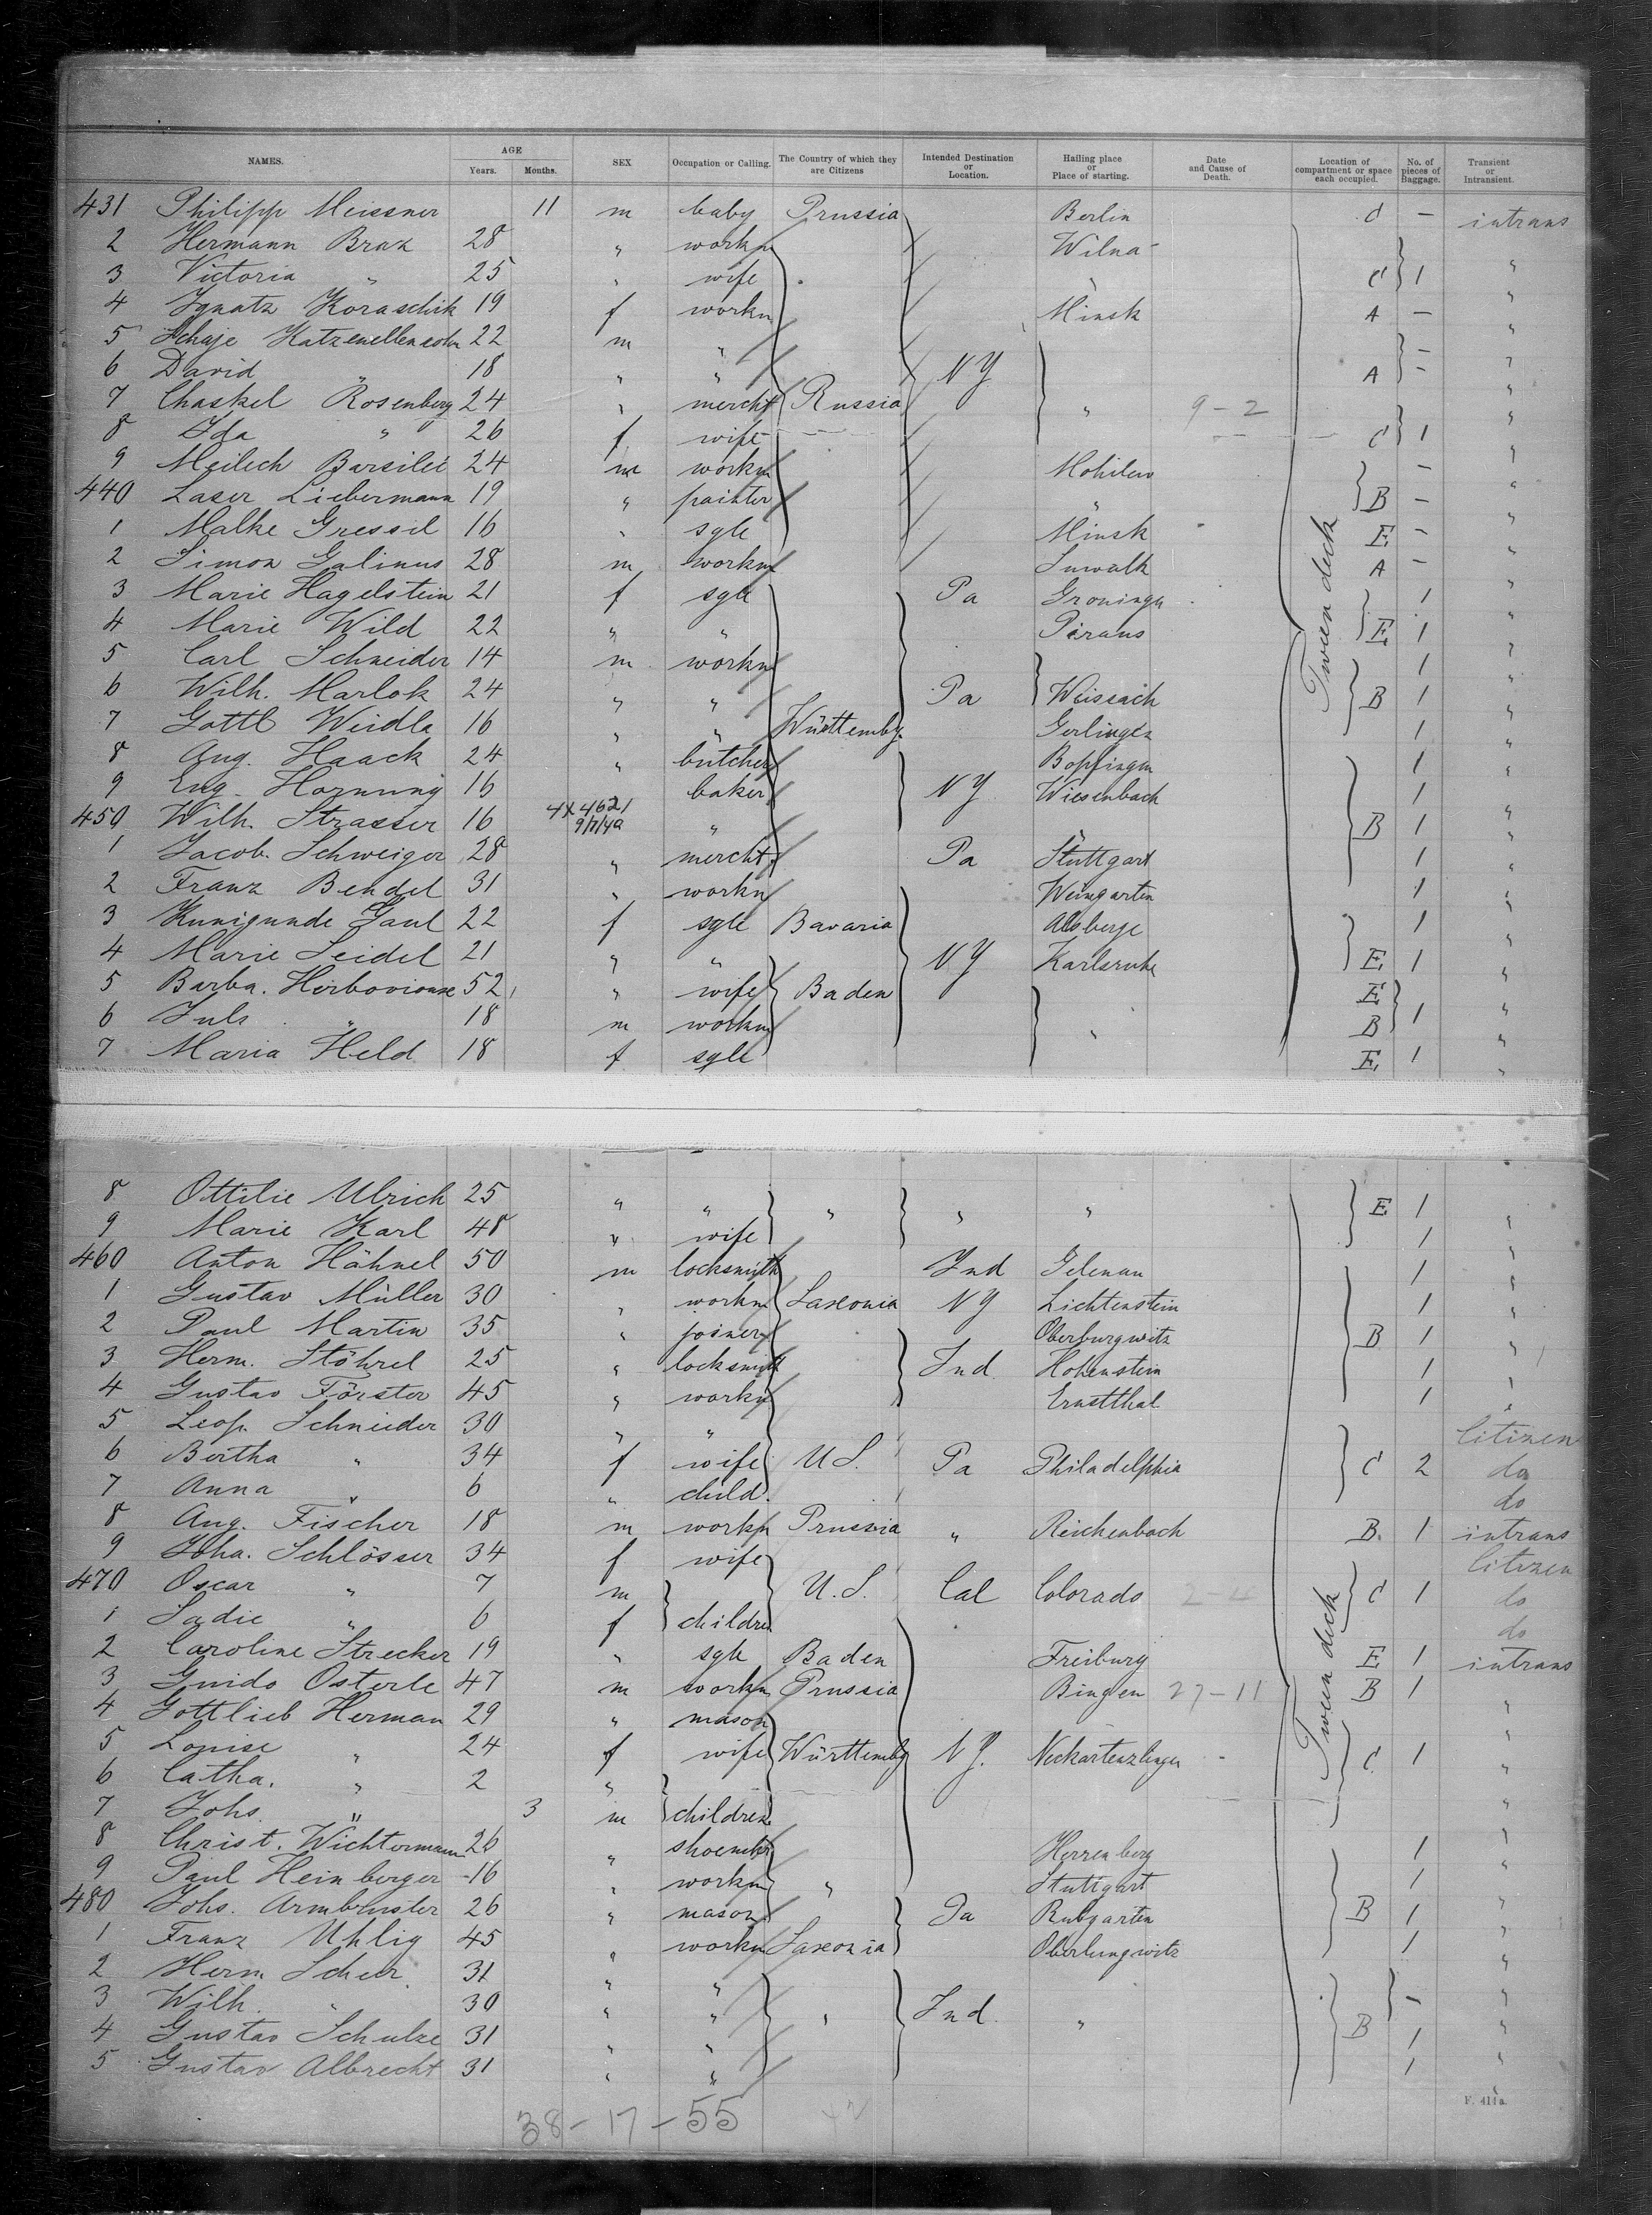 NAMES. AGE Years. Months. SEX Occupation or Calling. The Country of which they are Citizens Intended Destination or Location. Hailing place or Place of starting. Date and Cause of Death. Location of compartment or space each occupied. No. of pieces of Baggage. Transient or Intransient.
431 Philipp Meissner 11 m baby Prussia Berlin C – intrans
2 Hermann Braz 28 " workm Wilna "
3 Victoria " 25 " wife " C 1 "
4 Ignatz Koraschik 19 f workm Minsk A – "
5 Schaje Katzenellensohn 22 m " – "
6 David " 18 " " NY A – "
7 Chaskel Rosenberg 24 " mercht Russia " 9–2 "
8 Ida " 26 f wife C 1 "
9 Meilech Barsilei 24 m workm Mohilew – "
440 Laser Liebermann 19 " painter " B – "
1 Malke Gressel 16 " sgle Minsk E –
2 Simon Galinus 28 m workm Suwalk A – "
3 Marie Hagelstein 21 f sgle Pa 1 "
4 Marie Wild 22 " " E 1 "
5 Carl Schneider 14 m workm 1 "
6 Wilh. Marlok 24 " " Pa Weissach B 1 "
7 Gottl Weidle 16 " " Württembg. Gerlingen 1 "
8 Aug. Haack 24 " butcher Bopfingen 1 "
9 Eug. Hornung 16 baker NY Wiesenbach 1
4X4621
450 Wilh. Strasser 16 " " B 1 "
1 Jacob. Schweiger 28 " mercht. Pa Stuttgart 1 "
2 Franz Bendel 31 " workm Weingarten 1 "
3 Kunigunde Gaul 22 f sgle Bavaria 1 "
4 Marie Seidel 21 " " NY Karlsruhe E 1 "
5 Barba. 52 " wife Baden E "
6 Juls " 18 m workm " B 1 "
7 Maria Held 18 f sgle E 1 "
8 Ottilie Ulrich 25 " " " " " E 1 "
9 Marie Karl 48 " wife 1 "
460 Anton Hähnel 50 m locksmith Ind Gelenau 1 "
1 Gustav Müller 30 " workm Saxonia NY Lichtenstein 1 "
2 Paul Martin 35 " joiner Oberburgwitz B 1 "
3 Herm. Stöhrel 25 " locksmith Ind Hohenstein 1 "
4 Gustav Förster 45 " workm Ernstthal 1 "
5 Leop. Schneider 30 " " Citizen
6 Bertha " 34 f wife U S. Pa Philadelphia C 2 do
7 Anna " 6 " child. do
8 Aug. Fischer 18 m workm Prussia " Reichenbach B. 1 intrans
9 Joha. Schlösser 34 f wife Citizen
470 Oscar " 7 m U. S. Cal Colorado C 1 do
1 Sadie " 6 f children do
2 Caroline Strecker 19 " sgle Baden Freiburg E 1 intrans
3 Guido Osterle 47 m workm Prussia Bingen 27–11 B 1 "
4 Gottlieb Herman 29 " mason "
5 Louise " 24 f wife Württembg N Y. C 1 "
6 Catha. " 2 " "
7 Johs. " 3 m children "
8 Christ. Wichtermann 26 " shoemkr Herrenberg 1 "
9 Paul Heinberger 16 " workm " Stuttgart 1 "
480 Johs. Armbruster 26 " mason Pa Rubgarten B 1 "
1 Franz Uhlig 45 " workm Saxonia Oberlungwitz 1 "
2 Herm. Scheer 31 " " "
3 Wilh. " 30 " " " Ind. " – "
4 Gustav Schulze 31 " " B 1 "
5 Gustav Albrecht 31 " " 1 "
Tween deck
Tween deck
38–17–55
F. 411a.